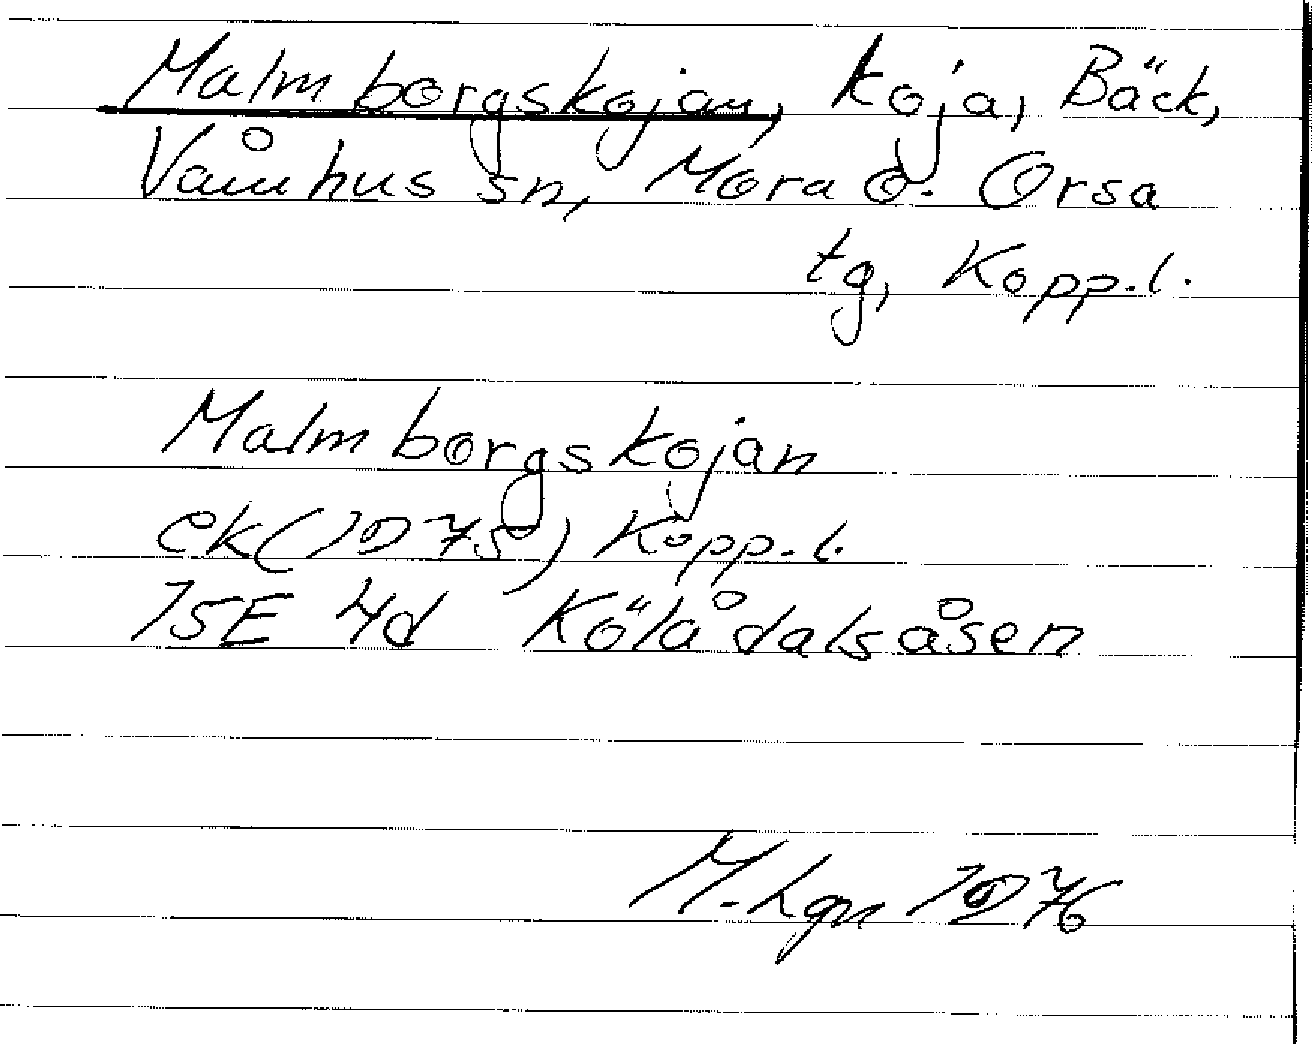 Malmborgskojan, koja, Bäck,
Våmhus sn, Mora o. Orsa
tg, Kopp.l.
Malmborgskojan
ek (1975) Kopp.l.
15E 4d Kölådalsåsen
M. Lgn 1976